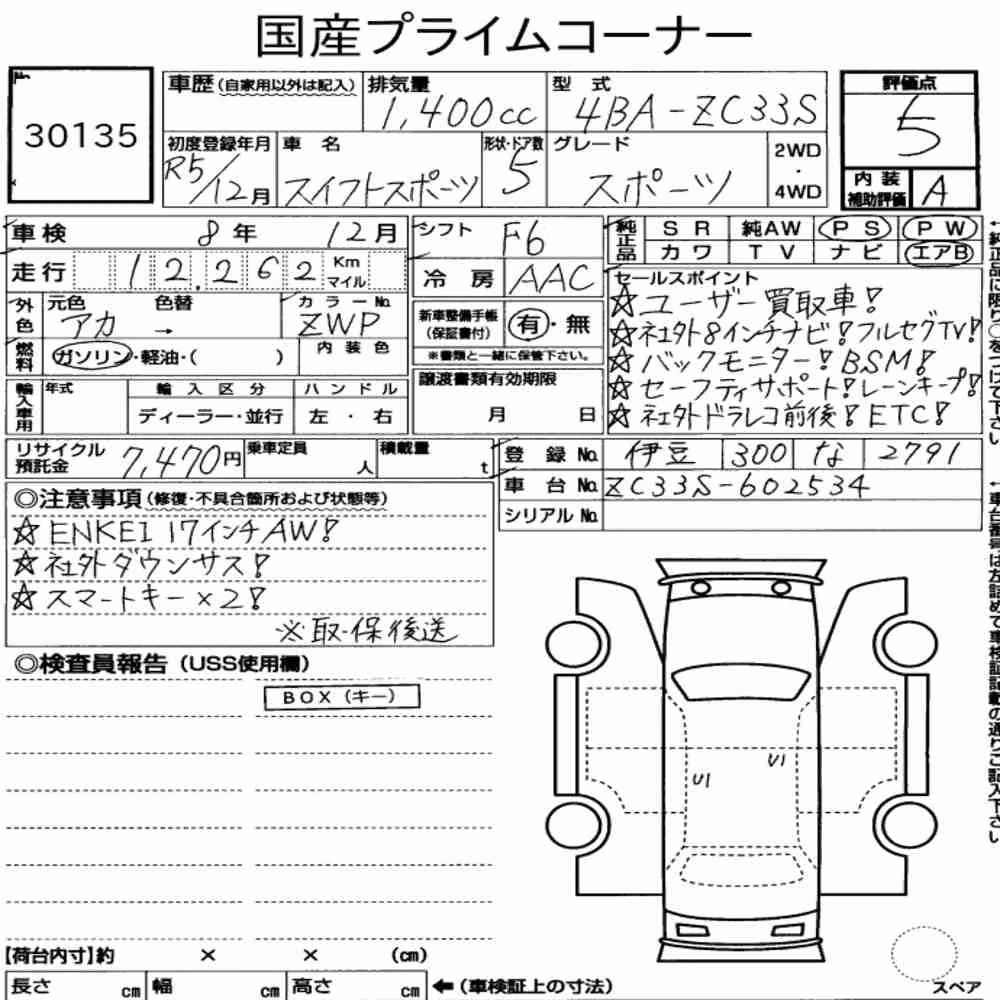 国産プライムコーナー
No. 30135
車歴(自家用以外は記入) 排気量 1,400cc 型式 4BA-ZC33S
評価点 5
初度登録年月 R5/12月 車名 スイフトスポーツ 形状・ドア数 5 グレード スポーツ 2WD・4WD
内装補助評価 A
車検 8年 12月 シフト F6
純正品 SR 純AW PS PW
カワ TV ナビ エアB
走行 12,262 Km マイル 冷房 AAC
外色 元色 アカ 色替 → カラーNo. ZWP
新車整備手帳(保証書付) 有・無
※書類と一緒に保管下さい。
燃料 ガソリン・軽油・( ) 内装色
セールスポイント
☆ユーザー買取車!
☆社外8インチナビ!フルセグTV!
☆バックモニター!BSM!
☆セーフティサポート!レーンキープ!
☆社外ドラレコ前後!ETC!
輸入車用 年式 輸入区分 ハンドル
ディーラー・並行 左・右
譲渡書類有効期限
月 日
リサイクル預託金 7,470円 乗車定員 人 積載量 t
登録No. 伊豆 300 な 2791
車台No. ZC33S-602534
シリアルNo.
◎注意事項(修復・不具合箇所および状態等)
☆ENKEI 17インチAW!
☆社外ダウンサス!
☆スマートキー×2!
※取・保後送
◎検査員報告(USS使用欄)
BOX(キー)
U1
U1
【荷台内寸】約 × × (cm)
長さ cm 幅 cm 高さ cm ←(車検証上の寸法)
スペア
←純正品に限り○をつけて下さい
←車台番号は左詰めで車検証記載の通りご記入下さい